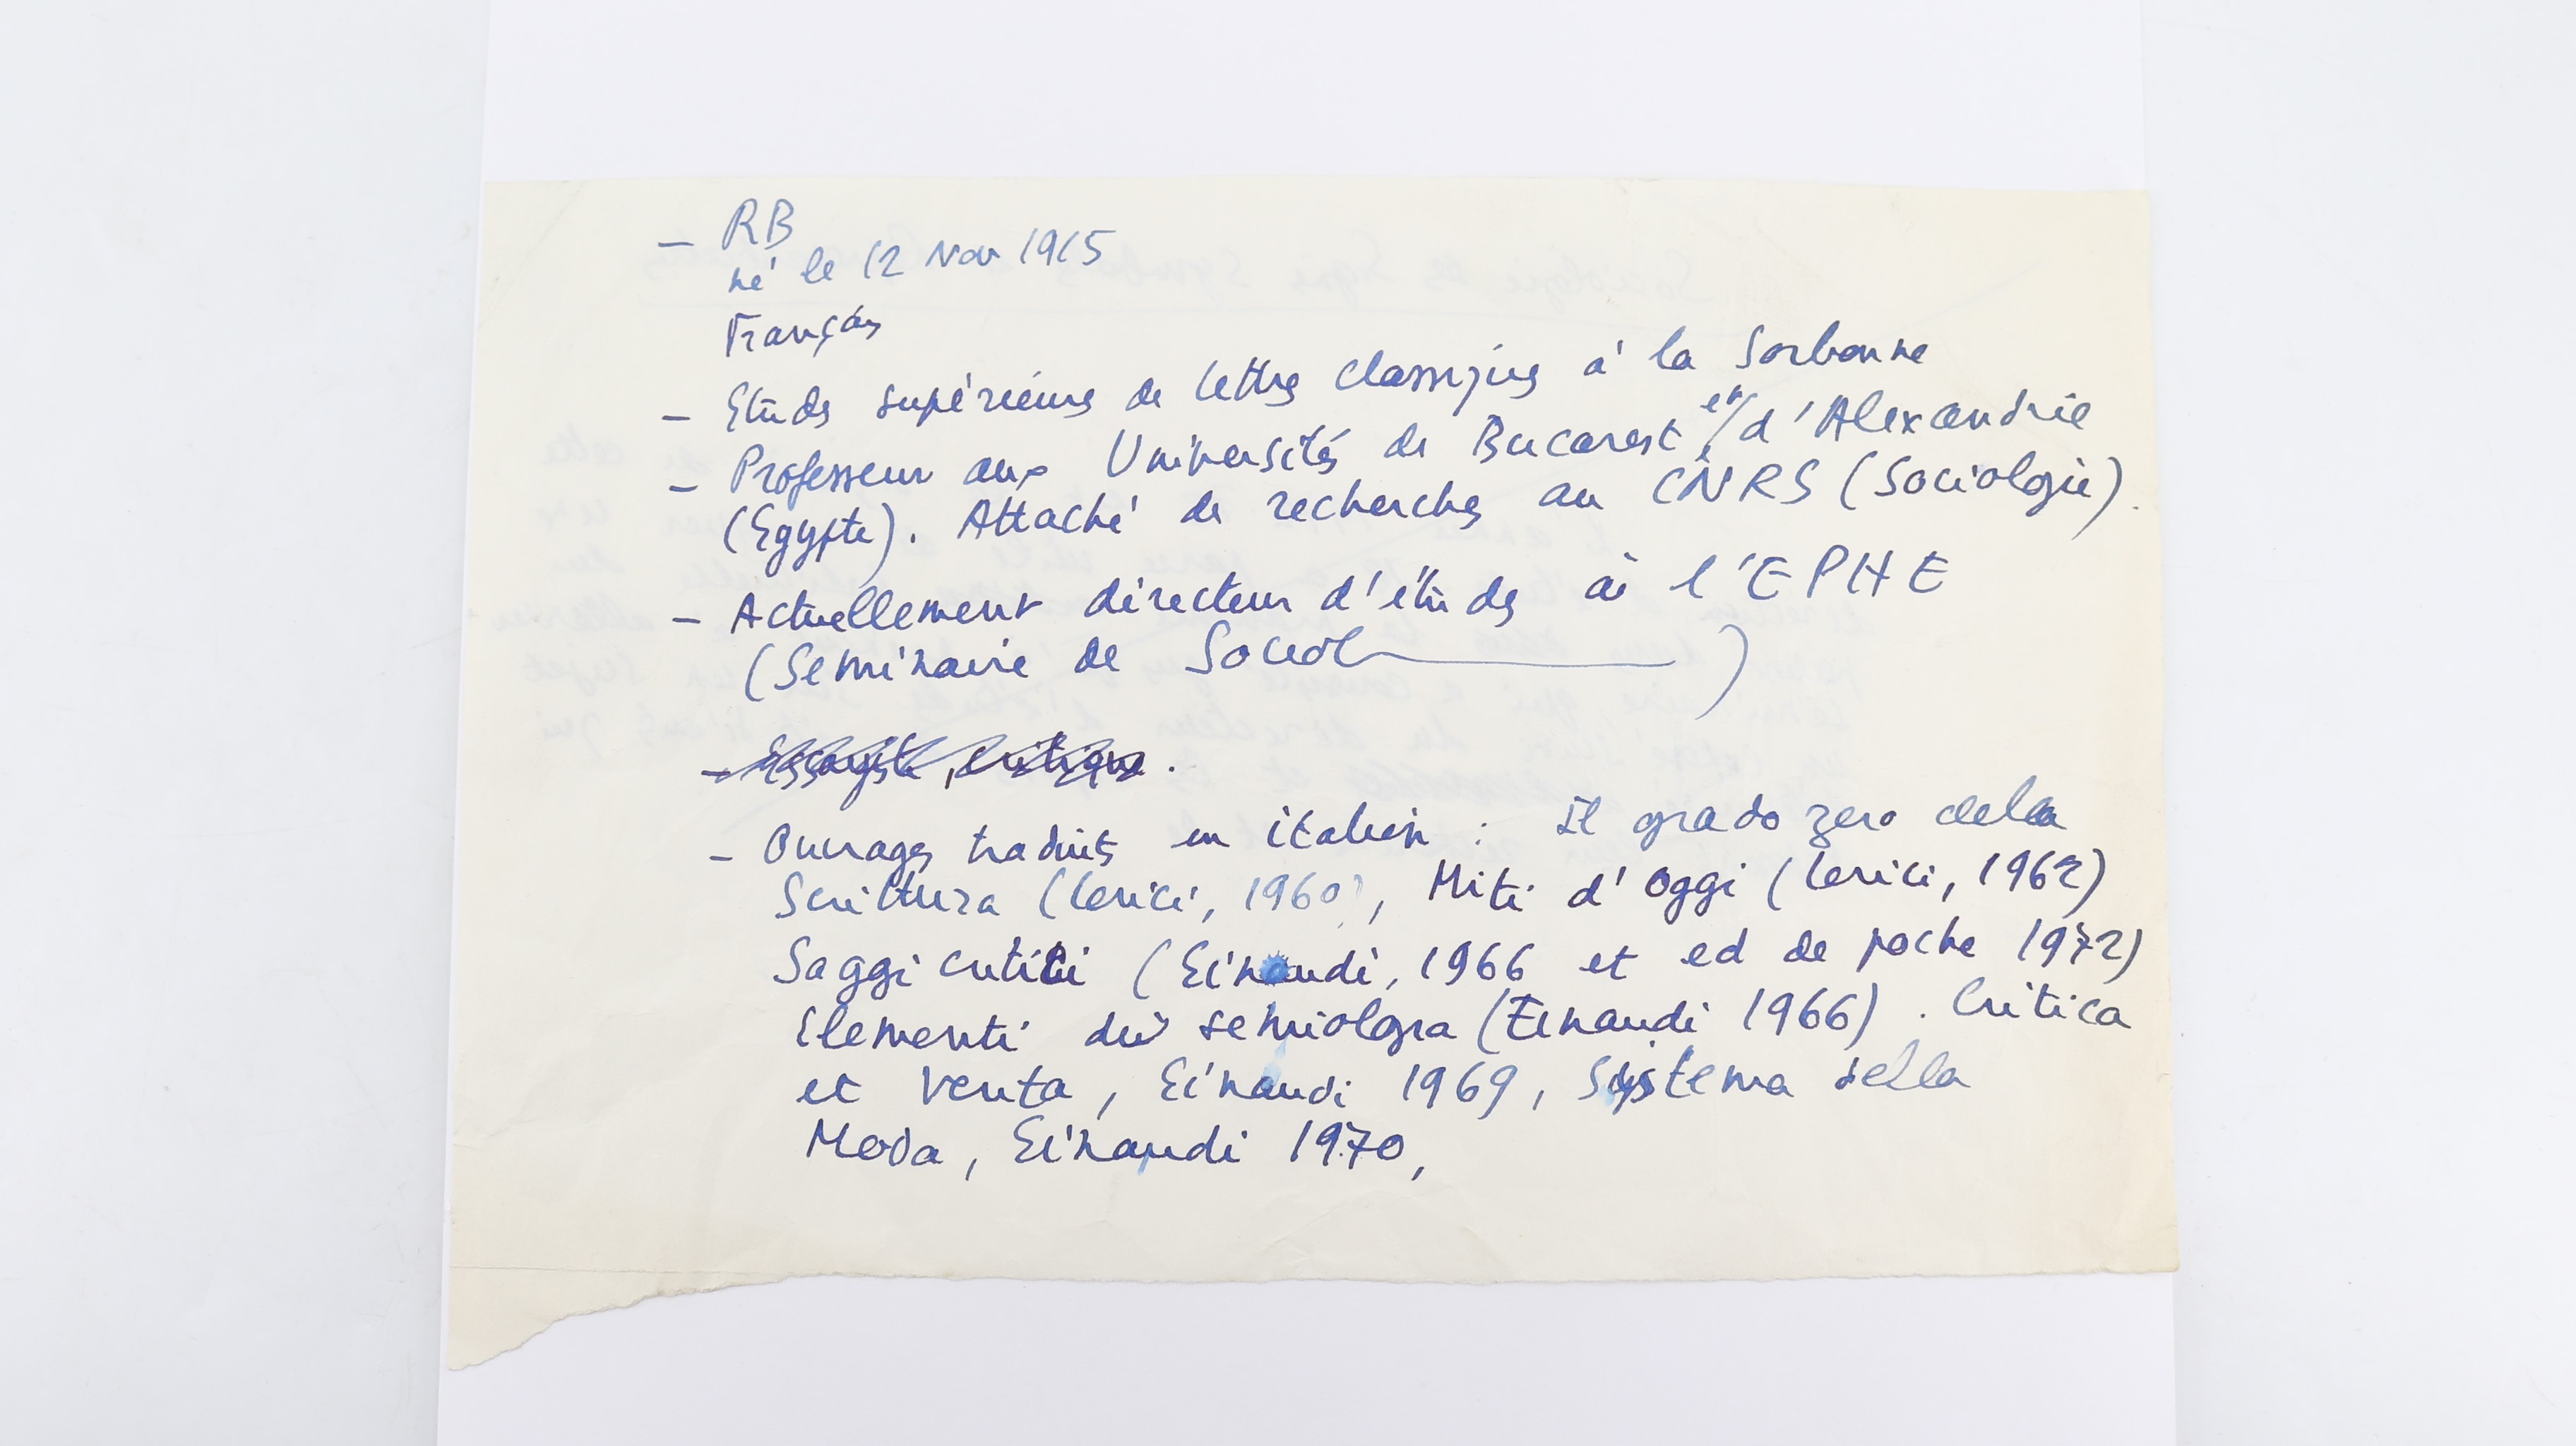 – RB
né le 12 Nov 1915
Français
– Etudes supérieures de lettres classiques à la Sorbonne
– Professeur aux Universités de Bucarest et/d'Alexandrie
(Egypte). Attaché de recherches au CNRS (Sociologie).
– Actuellement directeur d'études à l'EPHE
(Séminaire de Sociol———)
– Essayiste, critique.
– Ouvrages traduits en italien : Il grado zero della
Scrittura (Lerici, 1960), Miti d'Oggi (Lerici, 1962)
Saggi critici (Einaudi, 1966 et ed de poche 1972)
Elementi di semiologia (Einaudi 1966). Critica
et Verita, Einaudi 1969, Sistema della
Moda, Einaudi 1970,